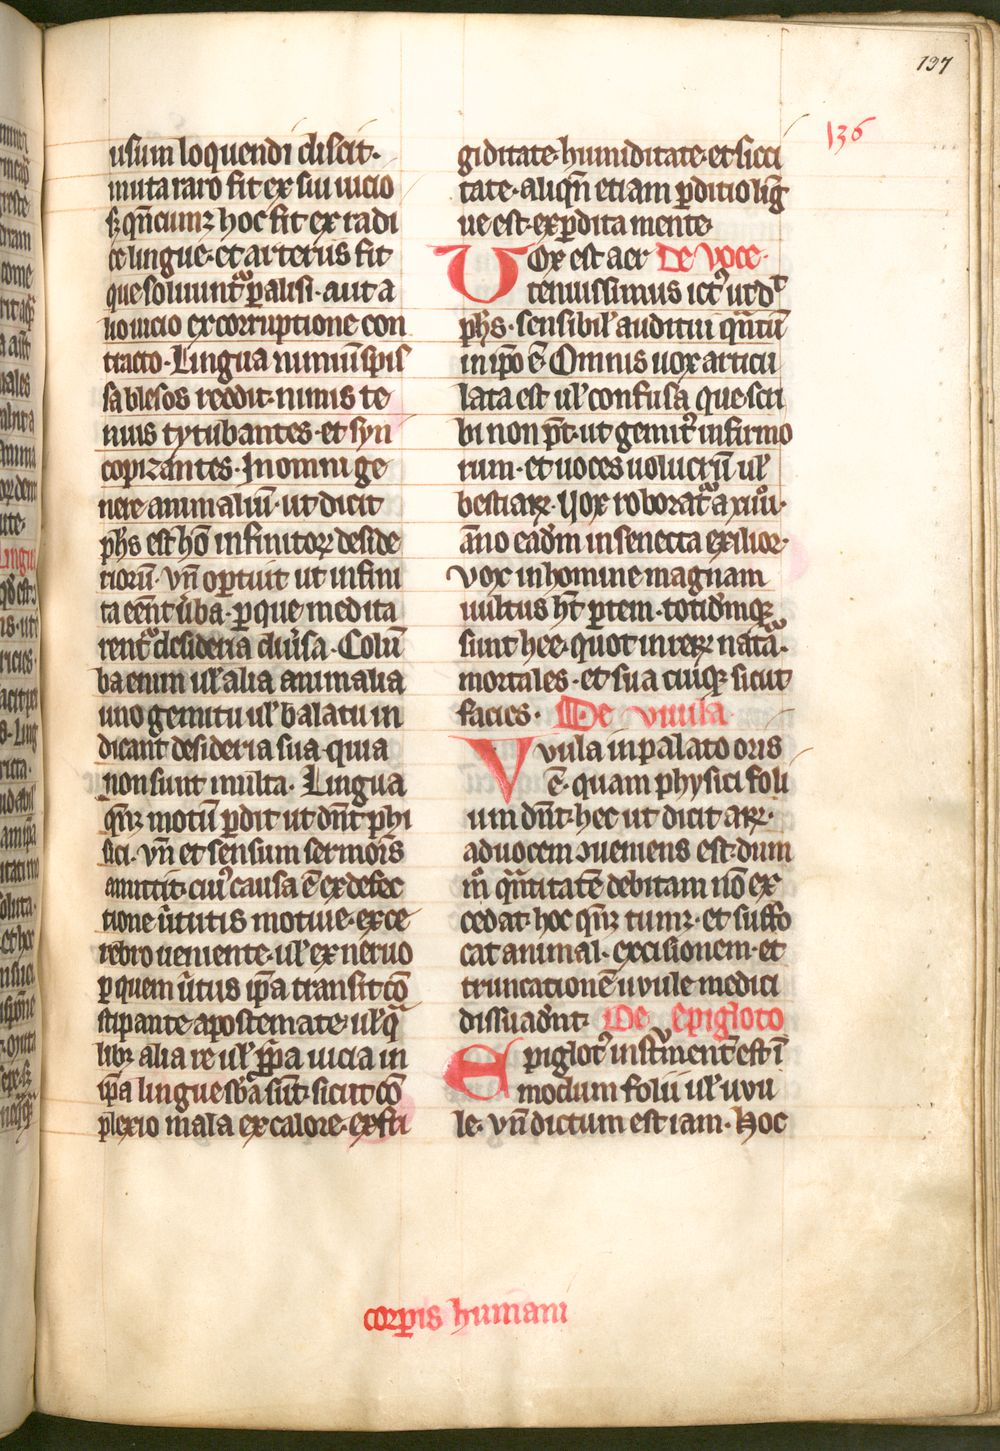 137
136
usum loquendi discit·
muta raro fit ex sui uicio
sꝫ qn̄cumꝫ hoc fit ex radi
ce lingue· et arteriis fit
que soluunt᷒ ꝑalisi· aut a
lio uicio ex corruptione con
tracto· Lingua nimiū spis
sa blesos reddit· nimis te
nuis tytubantes· et syn
copizantes· In omni ge
nere animaliū· ut dicit
ph̄s est hō infinitoꝝ deside
rioꝝ· vn̄ oꝑtuit ut infini
ta eēnt ūba· ꝑ que medita
rent᷒ desideria diūsa· Colū
ba enim ul̓ alia animalia
uno gemitu ul̓ balatu in
dicant desideria sua· quia
non sunt multa· Lingua
qn̄ꝫ motū ꝑdit ut dn̄t phi
sici· vn̄ et sensum sermōis
amittit· cui᷒ causa ē ex defec
tione ūtutis motiue· ex ce
rebro ueniente· ul̓ ex neruo
ꝑ quem ūtus ip̄a transit cō
stipante apostemate· ul̓ q̄
libꝫ alia re ul̓ ꝓp̄a uicia in
ip̄a lingue sb̄a sūt· sicut cō
plexio mala ex calore· ex fri
giditate· humiditate· et sicci
tate· aliqn̄ etiam ꝑditio liḡ
ue est· ex ꝑdita mente·
Vox est aer De voce·
tenuissimus ict᷒ ut d᷒t
ph̄s· sensibil̓ auditui qn̄tū
in ip̄o ē· Omnis uox articu
lata est ul̓ confusa que scri
bi non p̄t· ut gemit᷒ infirmo
rum· et uoces uolucrū ul̓
bestiaꝝ· Uox roborat᷒ a xiiii·
āno ead̄m in senecta exilior·
Vox in homine magnam
uultus hn̄t ꝑtem· totid̄mqꝫ
sunt hee· quot in reꝝ nat᷒a·
mortales· et sua cuiqꝫ sicut
facies· De vuula
Vvula in palato oris
ē· quam physici foli
um dn̄t· hec ut dicit aꝝ·
ad uocem ↄueniens est· dum
m̊ qn̄titatē debitam nō ex
cedat· hoc qn̄ꝫ tumꝫ· et suffo
cat animal· excisionem· et
truncationē uvule medici
dissuad̄nt· De epigloto
Epiglot᷒ instr̄ment̄ est ī
modum folii ul̓ uvu
le· vn̄ dictum est iam· Hoc
corpis humani